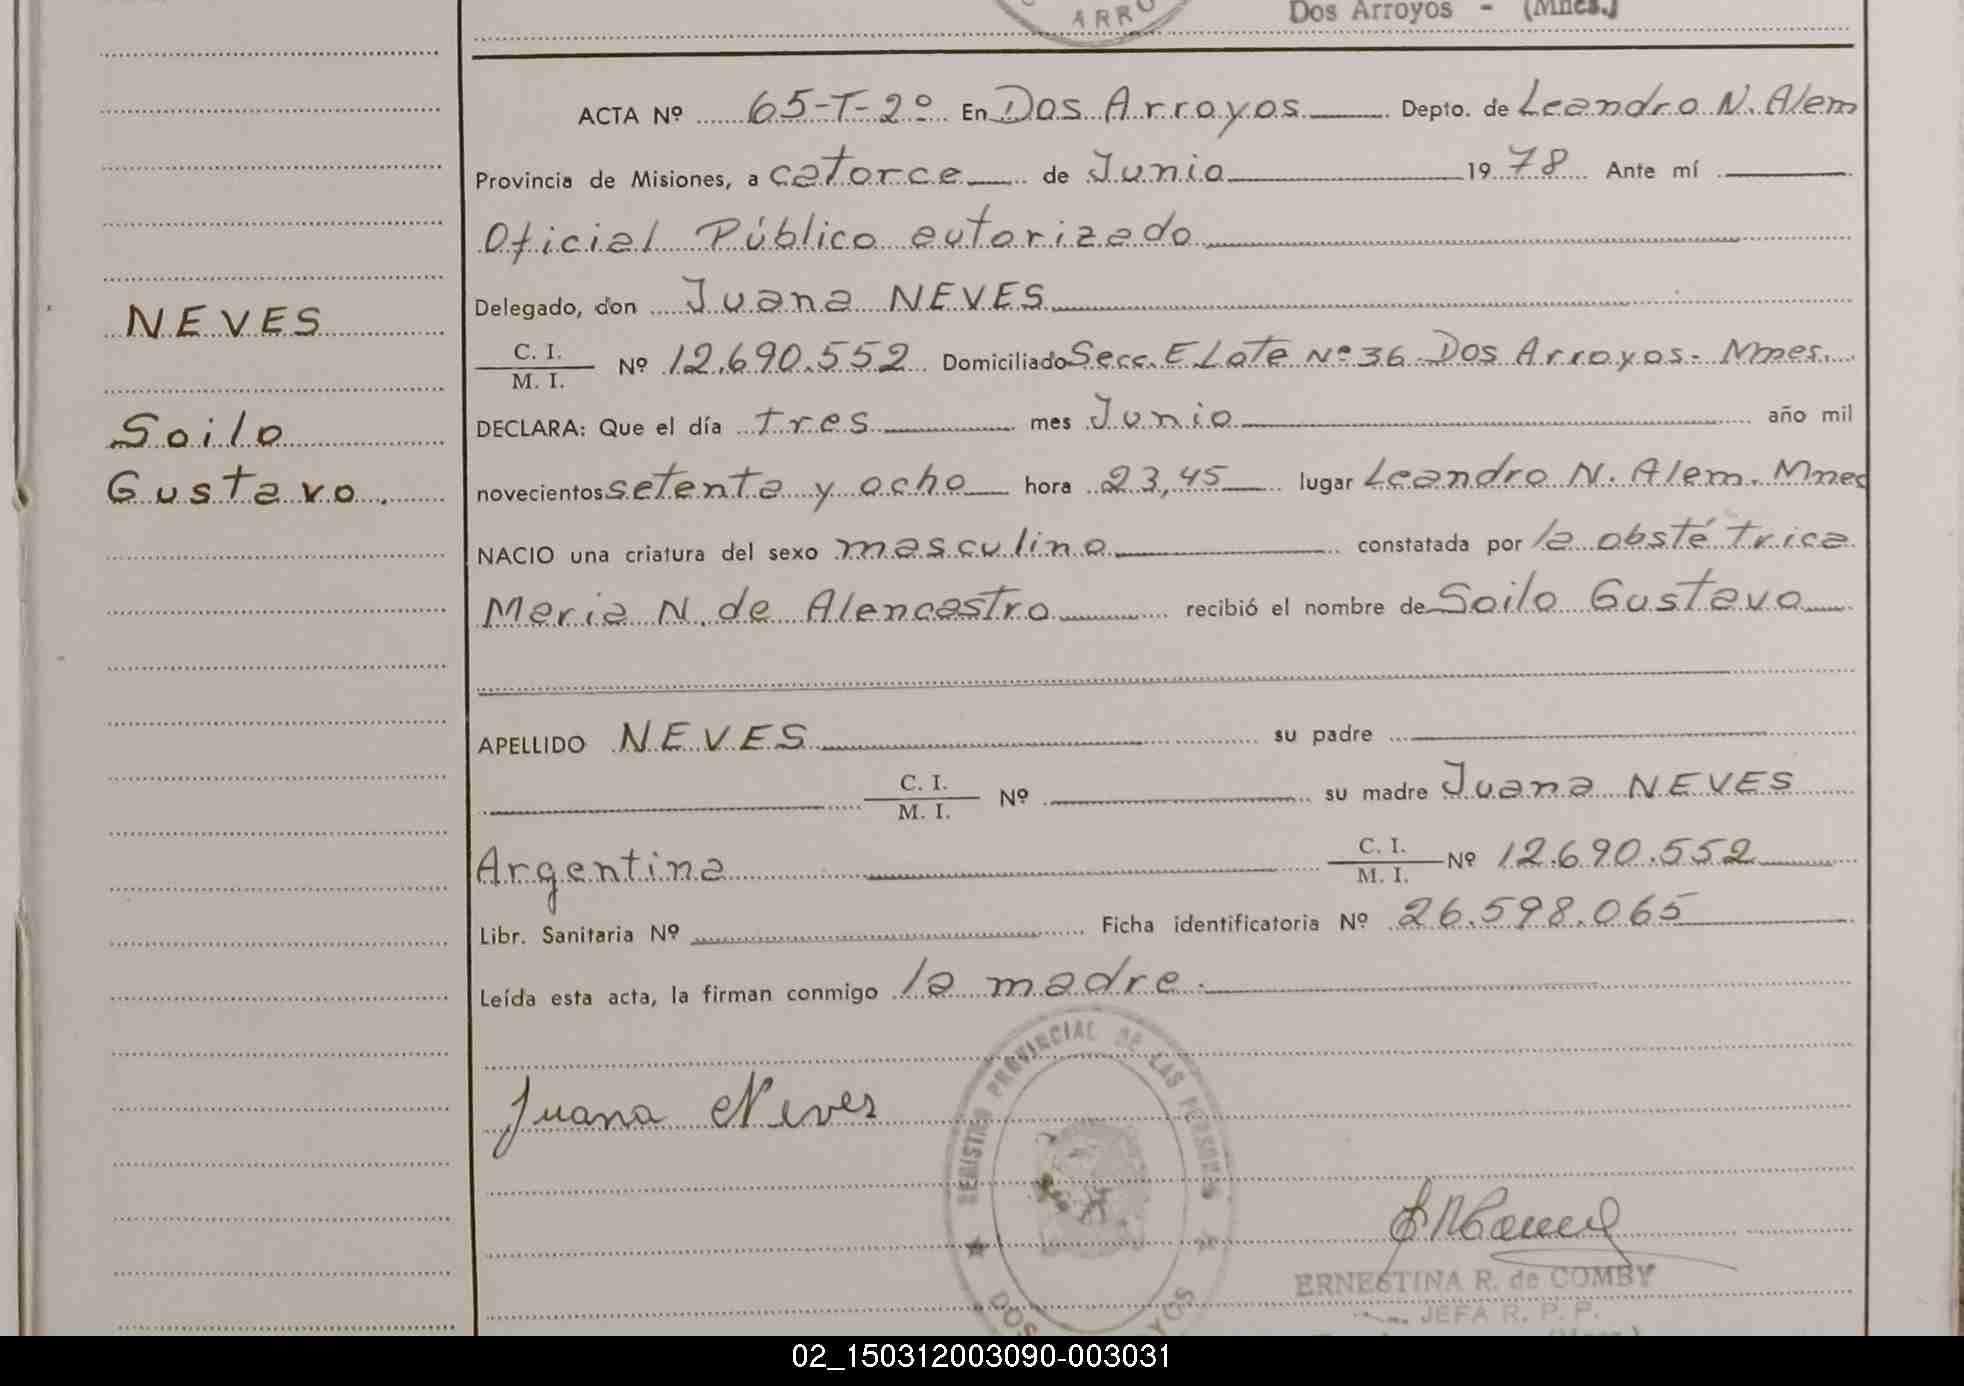 ARRO
Dos Arroyos - (Mnes.)
ACTA Nº 65-T-2º En Dos Arroyos Depto. de Leandro N. Alem
Provincia de Misiones, a catorce de Junio 19 78 Ante mí
Oficial Público autorizado
Delegado, don Juana NEVES
C. I.
M. I. Nº 12.690.552 Domiciliado Secc. E Lote Nº 36 Dos Arroyos- Mnes.
DECLARA: Que el día tres mes Junio año mil
novecientos setenta y ocho hora 23,45 lugar Leandro N. Alem. Mnes
NACIO una criatura del sexo masculino constatada por la obstétrica
Maria N. de Alencastro recibió el nombre de Soilo Gustavo
NEVES
Soilo
Gustavo.
APELLIDO NEVES su padre
C. I.
M. I. Nº su madre Juana NEVES
Argentina C. I.
M. I. Nº 12.690.552
Libr. Sanitaria Nº Ficha identificatoria Nº 26.598.065
Leída esta acta, la firman conmigo la madre.
Juana Neves
REGISTRO PROVINCIAL DE LAS PERSONAS
DOS YOS
ERNESTINA R. de COMBY
JEFA R. P. P.
02_150312003090-003031